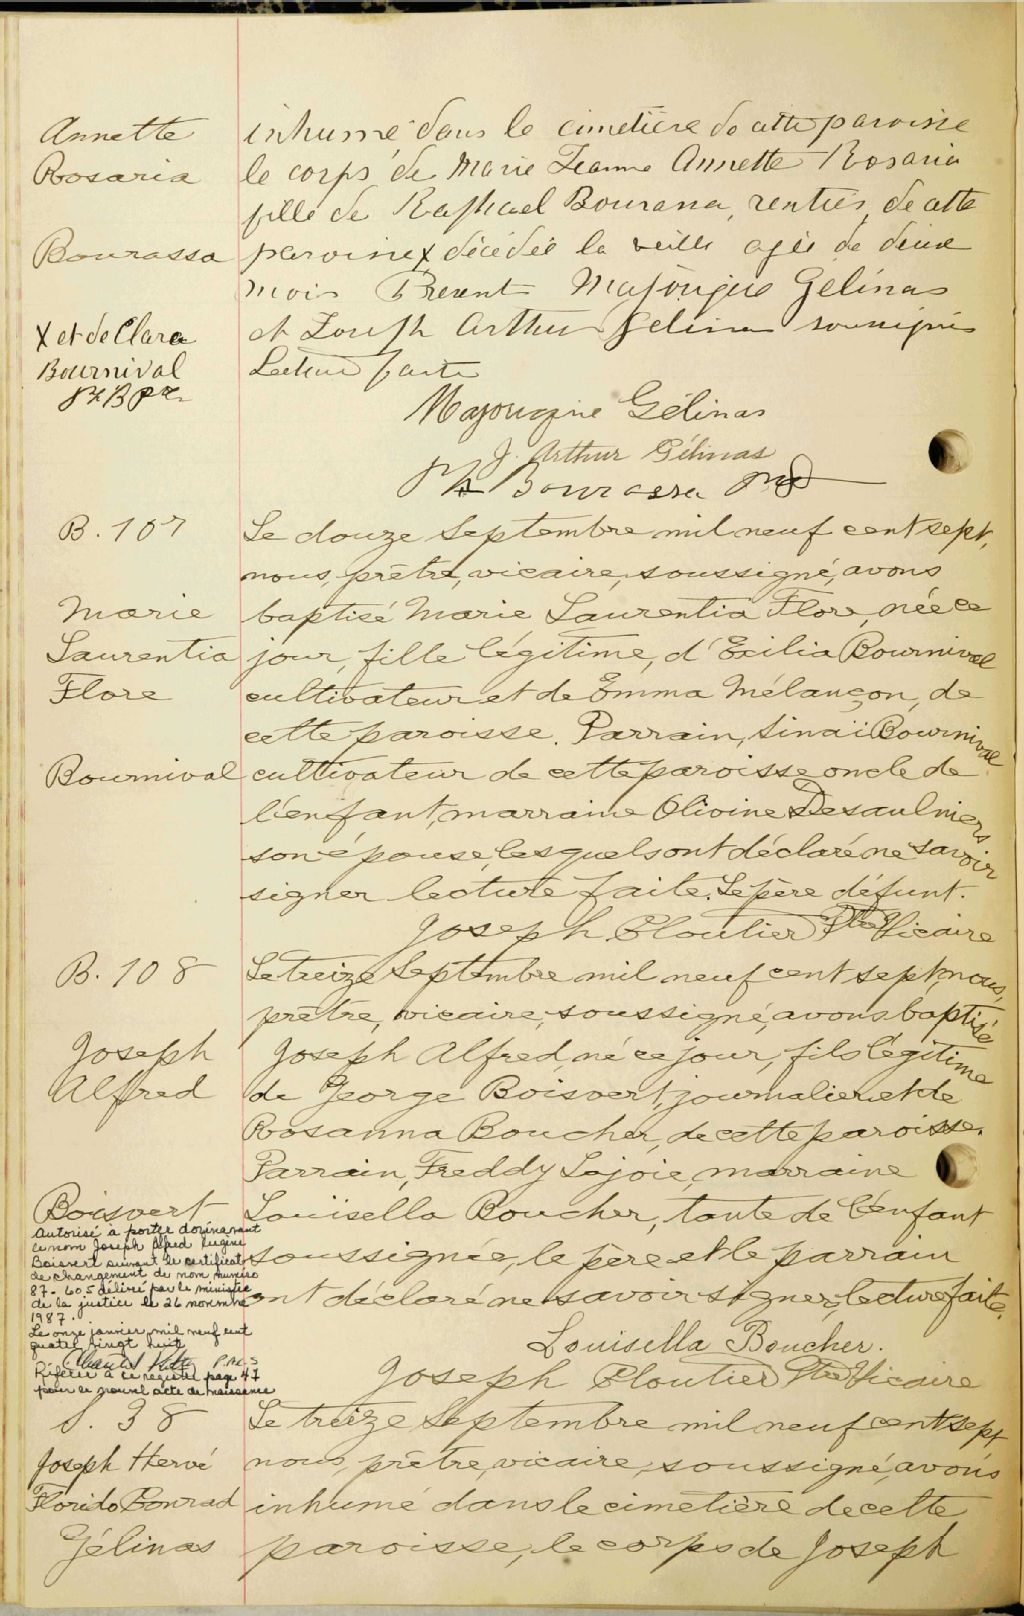 Annette
Rosaria
Bourassa
X et de Clara
Bournival
Ph B Ptre
inhumé dans le cimetière de cette paroisse
le corps de Marie Jeanne Annette Rosaria
fille de Raphael Bourassa, rentier, de cette
paroisse X décédée la veille agée de deux
mois Present Majorique Gelinas
et Joseph Arthur Gelinas soussignés
Lecture faite
Majorique Gélinas
J. Arthur Gélinas
Ph Bourassa
B. 107
Marie
Laurentia
Flore
Bournival
Le douze Septembre mil neuf cent sept,
nous, prêtre, vicaire, soussigné, avons
baptisé Marie Laurentia Flore, née ce
jour, fille légitime, d'Exilia Bournival
cultivateur et de Emma Mélançon, de
cette paroisse. Parrain, Sinaï Bournival
cultivateur de cette paroisse oncle de
l'enfant, marraine Olivine Desaulniers
son épouse, lesquels ont déclaré ne savoir
signer lecture faite. Le père défunt.
Joseph Cloutier Ptre Vicaire
B. 108
Joseph
Alfred
Boisvert
Autorisé à porter dorénavant
ce nom Joseph Alfred Eugène
Boisvert suivant le certificat
de changement de nom numéro
87-605 délivré par le ministre
de la justice le 26 novembre
1987.
Le onze janvier mil neuf cent
quatre vingt huit
P.A.C.S
Référer à ce registre page 47
pour le nouvel acte de naissance
Le treize Septembre mil neuf cent sept, nous,
prêtre, vicaire, soussigné, avons baptisé
Joseph Alfred, né ce jour, fils légitime
de George Boisvert, journalier et de
Rosanna Boucher, de cette paroisse.
Parrain, Freddy Lajoie, marraine
Louïsella Boucher, tante de l'enfant
soussignée, le père et le parrain
ont déclaré ne savoir signer, lecture faite.
Louisella Boucher.
Joseph Cloutier Ptre Vicaire
S. 38
Joseph Hervé
Florido Conrad
Gélinas
Le treize Septembre mil neuf cent sept
nous, prêtre, vicaire, soussigné, avons
inhumé dans le cimetière de cette
paroisse, le corps de Joseph